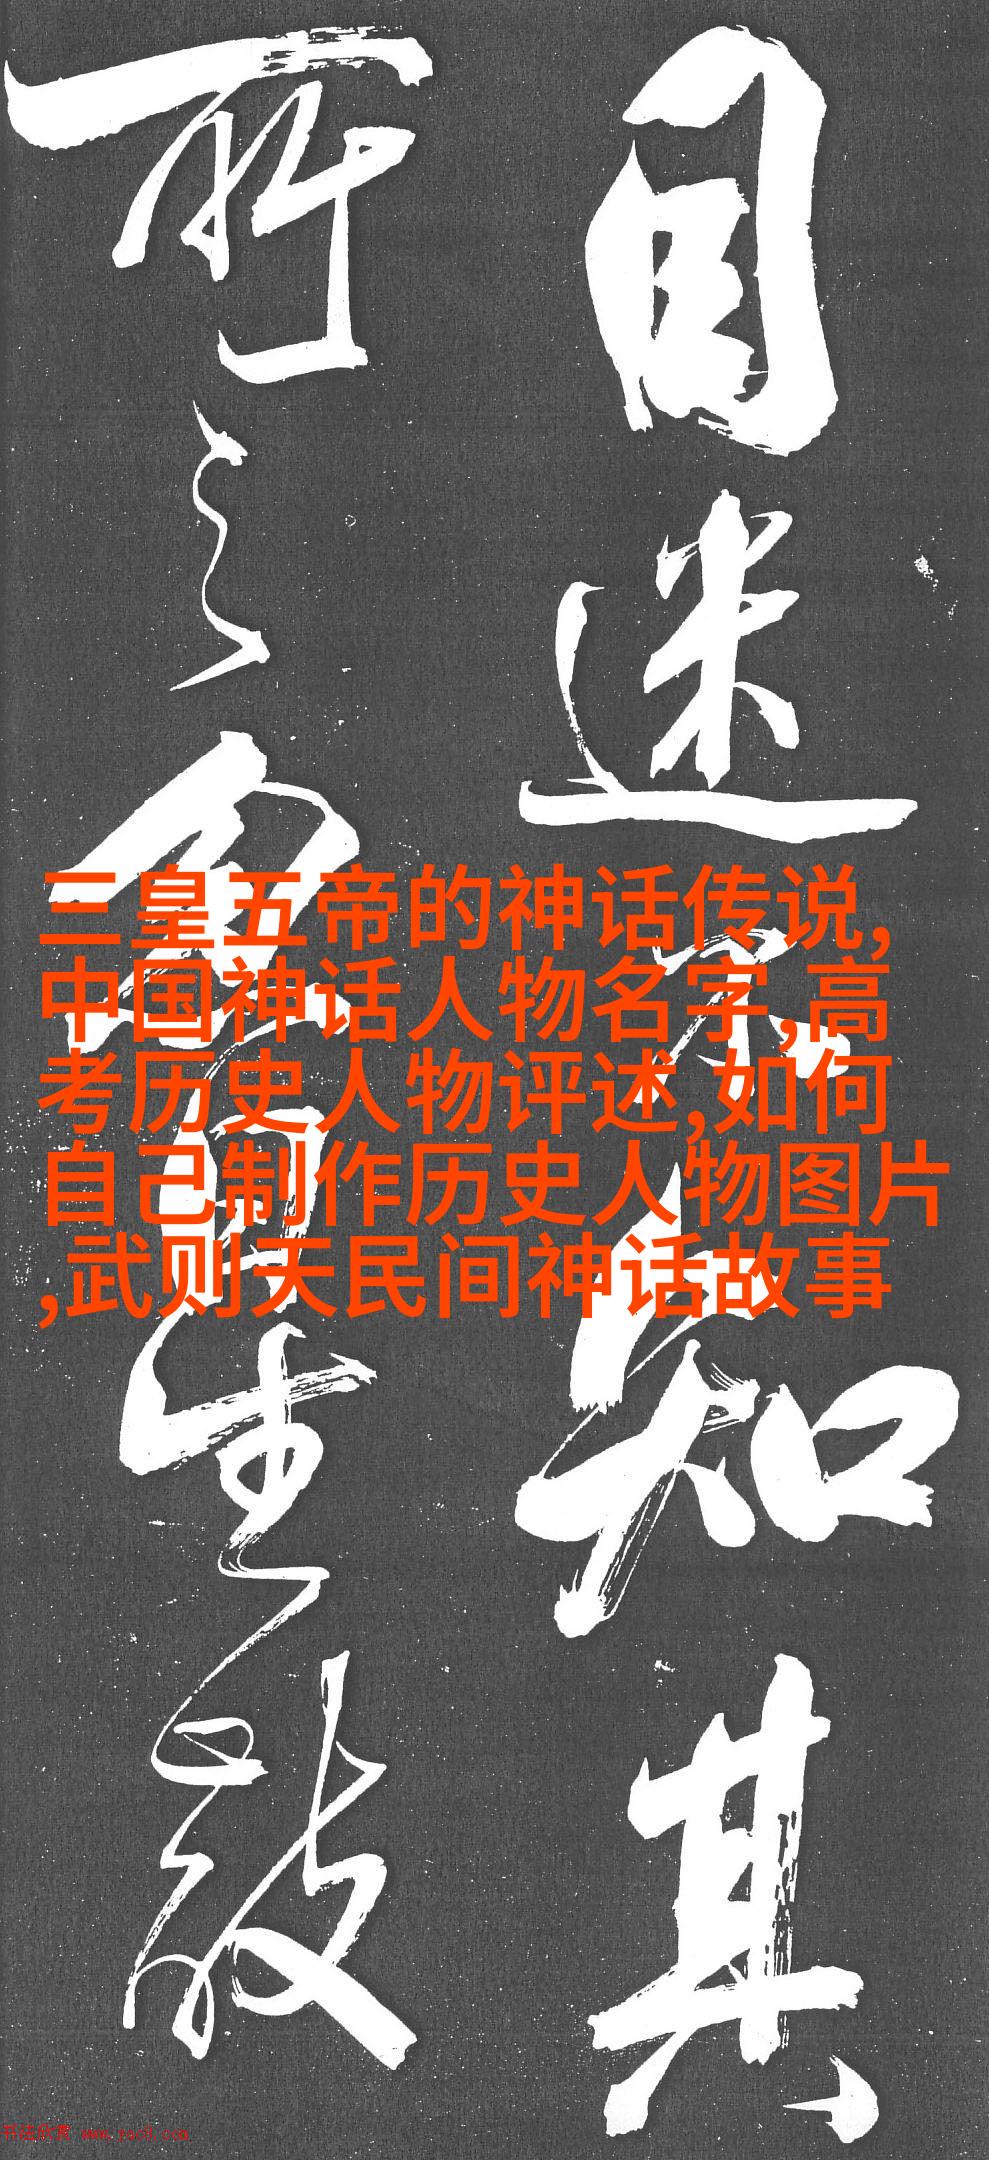 目迷不知其
所之自生
三皇五帝的神话传说,
中国神话人物名字,高
考历史人物评述,如何
自己制作历史人物图片
,武则天民间神话故事